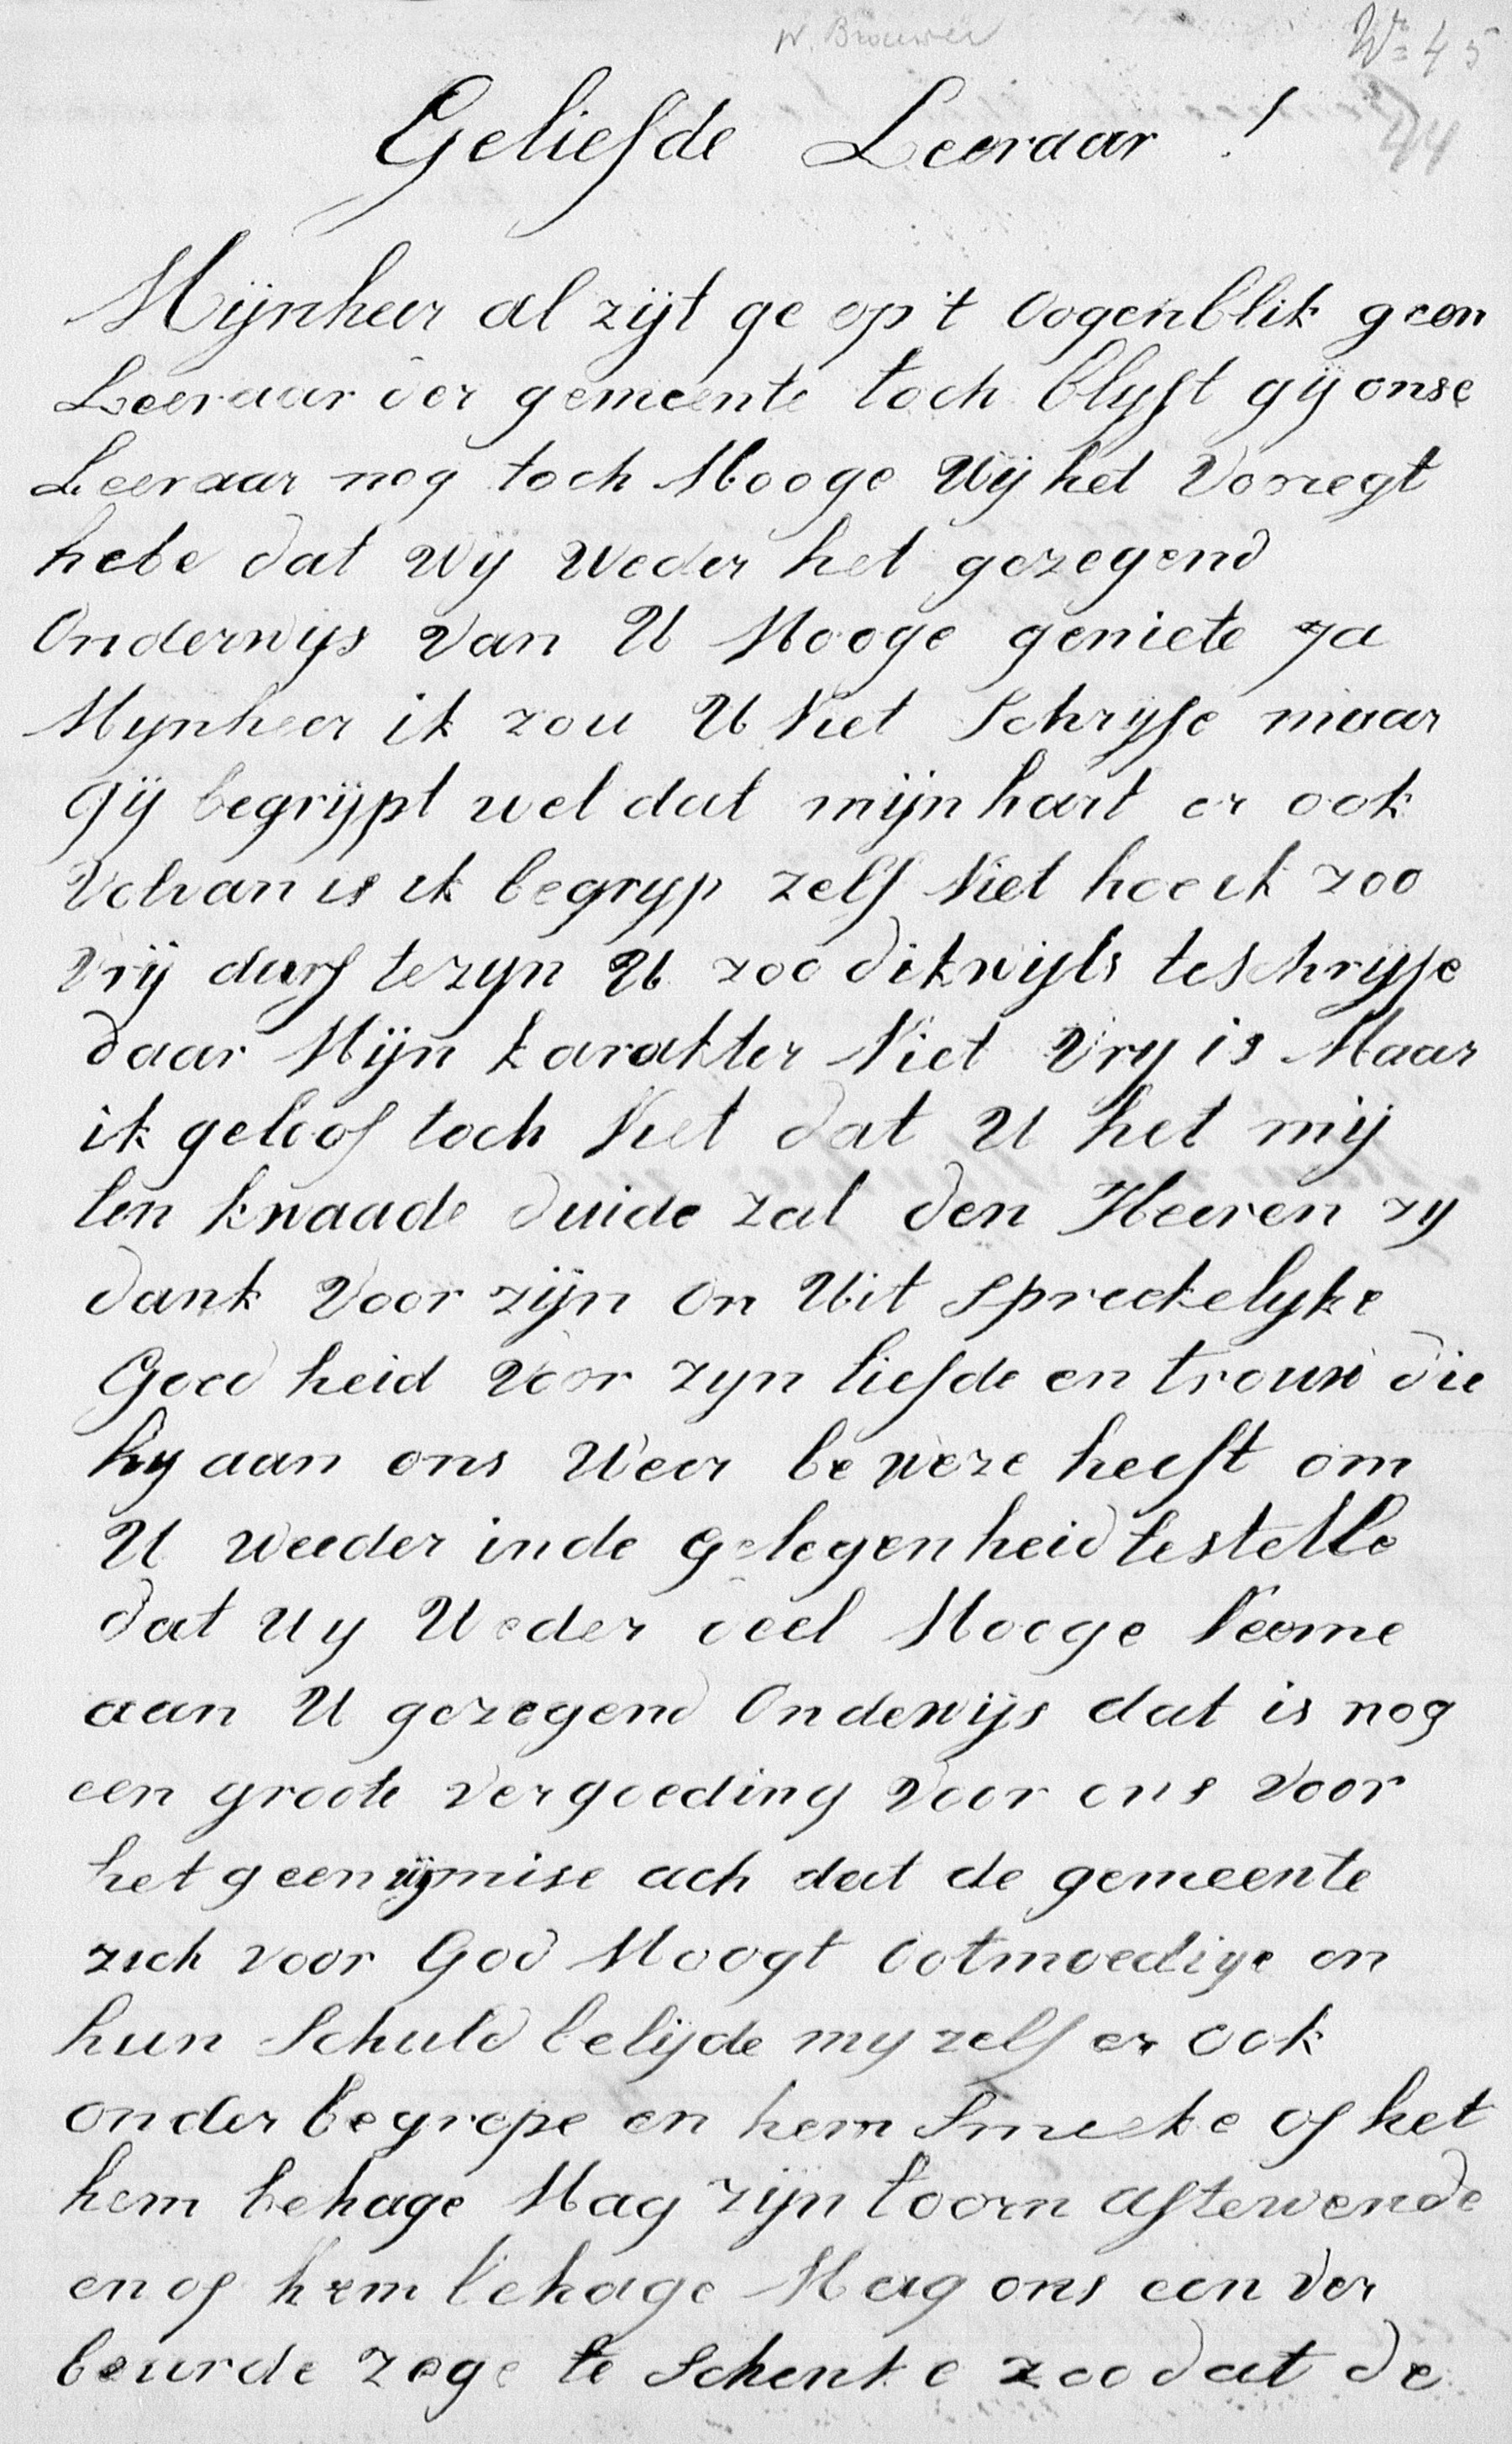 W. Brouwer
No 45
Geliefde Leeraar !
Mijnheer al zijt ge op 't oogenblik geen
Leeraar der gemeente toch blyft gij onse
Leeraar nog toch Mooge Wij het Vorregt
hebe dat Wij Weder het gezegend
Onderwijs Van U Mooge geniete ja
Mynheer ik zou U Niet Schryfe maar
gij begrijpt wel dat mijn hart er ook
Vol van is ik begryp zelf Niet hoe ik zoo
Vrij durf te zyn U zoo dikwijls te schrijfe
daar Mijn karakter Niet Vry is Maar
ik geloof toch Niet dat U het mij
ten kwaade duide zal den Heeren zy
dank Voor zijn on Uit Spreekelyke
Goed heid Voor zyn liefde en trouw die
hy aan ons Weer be weze heeft om
U weeder in de gelegenheid te stelle
dat Wy Weder deel Mooge Neeme
aan U gezegend Onderwijs dat is nog
een groote vergoeding Voor ons Voor
het geen wij mise ach dat de gemeente
zich voor God Moogt Ootmoedige en
hun Schuld belijde my zelf er ook
onder begrepe en hem Smeeke of het
hem behage Mag zijn toorn af te wende
en of hem behage Mag ons een ver
beurde zege te Schenke zoo dat de